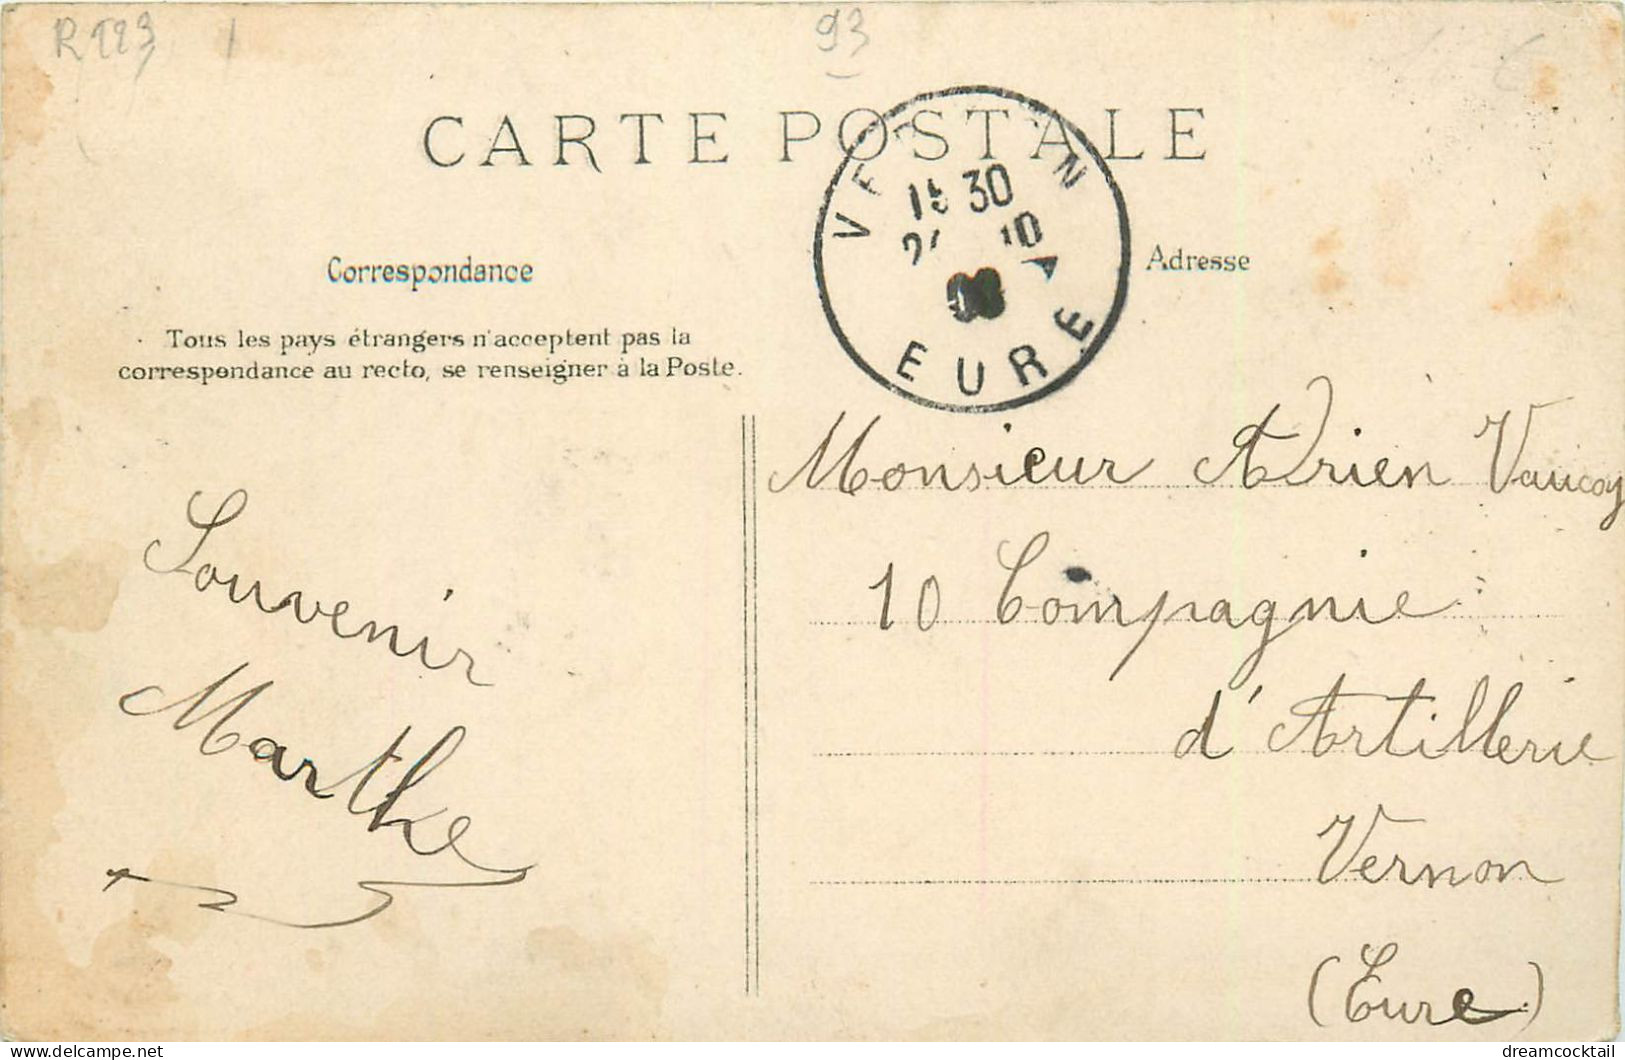 R 123
93
CARTE POSTALE
VE N
15 30
10
EURE
Correspondance
Adresse
Tous les pays étrangers n'acceptent pas la
correspondance au recto, se renseigner à la Poste.
Souvenir
Marthe
Monsieur Adrien Vaucoy
10 Compagnie
d'Artillerie
Vernon
(Eure)
dreamcocktail